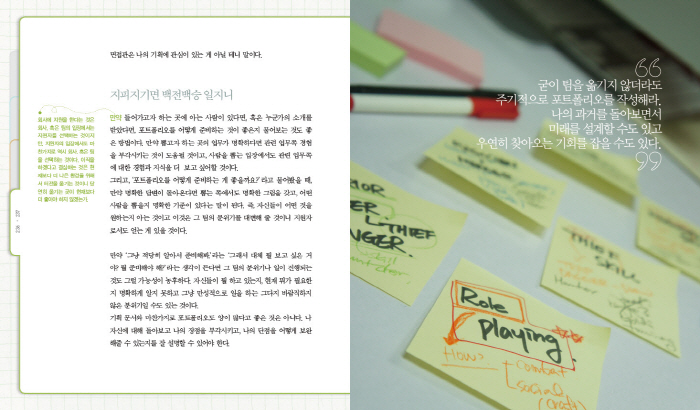 면접관은 나의 기획에 관심이 있는 게 아닐 테니 말이다.
지피지기면 백전백승 일지니
만약 들어가고자 하는 곳에 아는 사람이 있다면, 혹은 누군가의 소개를
받았다면, 포트폴리오를 어떻게 준비하는 것이 좋은지 물어보는 것도 좋
은 방법이다. 만약 뽑고자 하는 곳의 업무가 명확하다면 관련 업무쪽 경험
을 부각시키는 것이 도움될 것이고, 사람을 뽑는 입장에서도 관련 업무쪽
에 대한 경험과 지식을 더 보고 싶어할 것이다.
그리고, '포트폴리오를 어떻게 준비하는 게 좋을까요?'라고 물어봤을 때,
만약 명확한 답변이 돌아온다면 뽑는 쪽에서도 명확한 그림을 갖고, 어떤
사람을 뽑을지 명확한 기준이 있다는 말이 된다. 즉, 자신들이 어떤 것을
원하는지 아는 것이고 이것은 그 팀의 분위기를 대변해 줄 것이니 지원자
로서도 얻는 게 있을 것이다.
만약 '그냥 적당히 알아서 준비해봐.'라는 '그래서 대체 뭘 보고 싶은 거
야? 뭘 준비해야 해?'라는 생각이 든다면 그 팀의 분위기나 일이 진행되는
것도 그럴 가능성이 농후하다. 자신들이 뭘 하고 있는지, 현재 뭐가 필요한
지 명확하게 알지 못하고 그냥 만성적으로 일을 하는 그다지 바람직하지
않은 분위기일 수도 있는 것이다.
기획 문서와 마찬가지로 포트폴리오도 양이 많다고 좋은 것은 아니다. 나
자신에 대해 돌아보고 나의 장점을 부각시키고, 나의 단점을 어떻게 보완
해줄 수 있는지를 잘 설명할 수 있어야 한다.
회사에 지원을 한다는 것은
회사, 혹은 팀의 입장에서는
지원자를 선택하는 것이지
만, 지원자의 입장에서도 마
찬가지로 역시 회사, 혹은 팀
을 선택하는 것이다. 이직을
236
237
굳이 팀을 옮기지 않더라도
주기적으로 포트폴리오를 작성해라.
나의 과거를 돌아보면서
미래를 설계할 수도 있고
우연히 찾아오는 기회를 잡을 수도 있다.
THIEF
SKILL
Role
playing
How?
combat
social